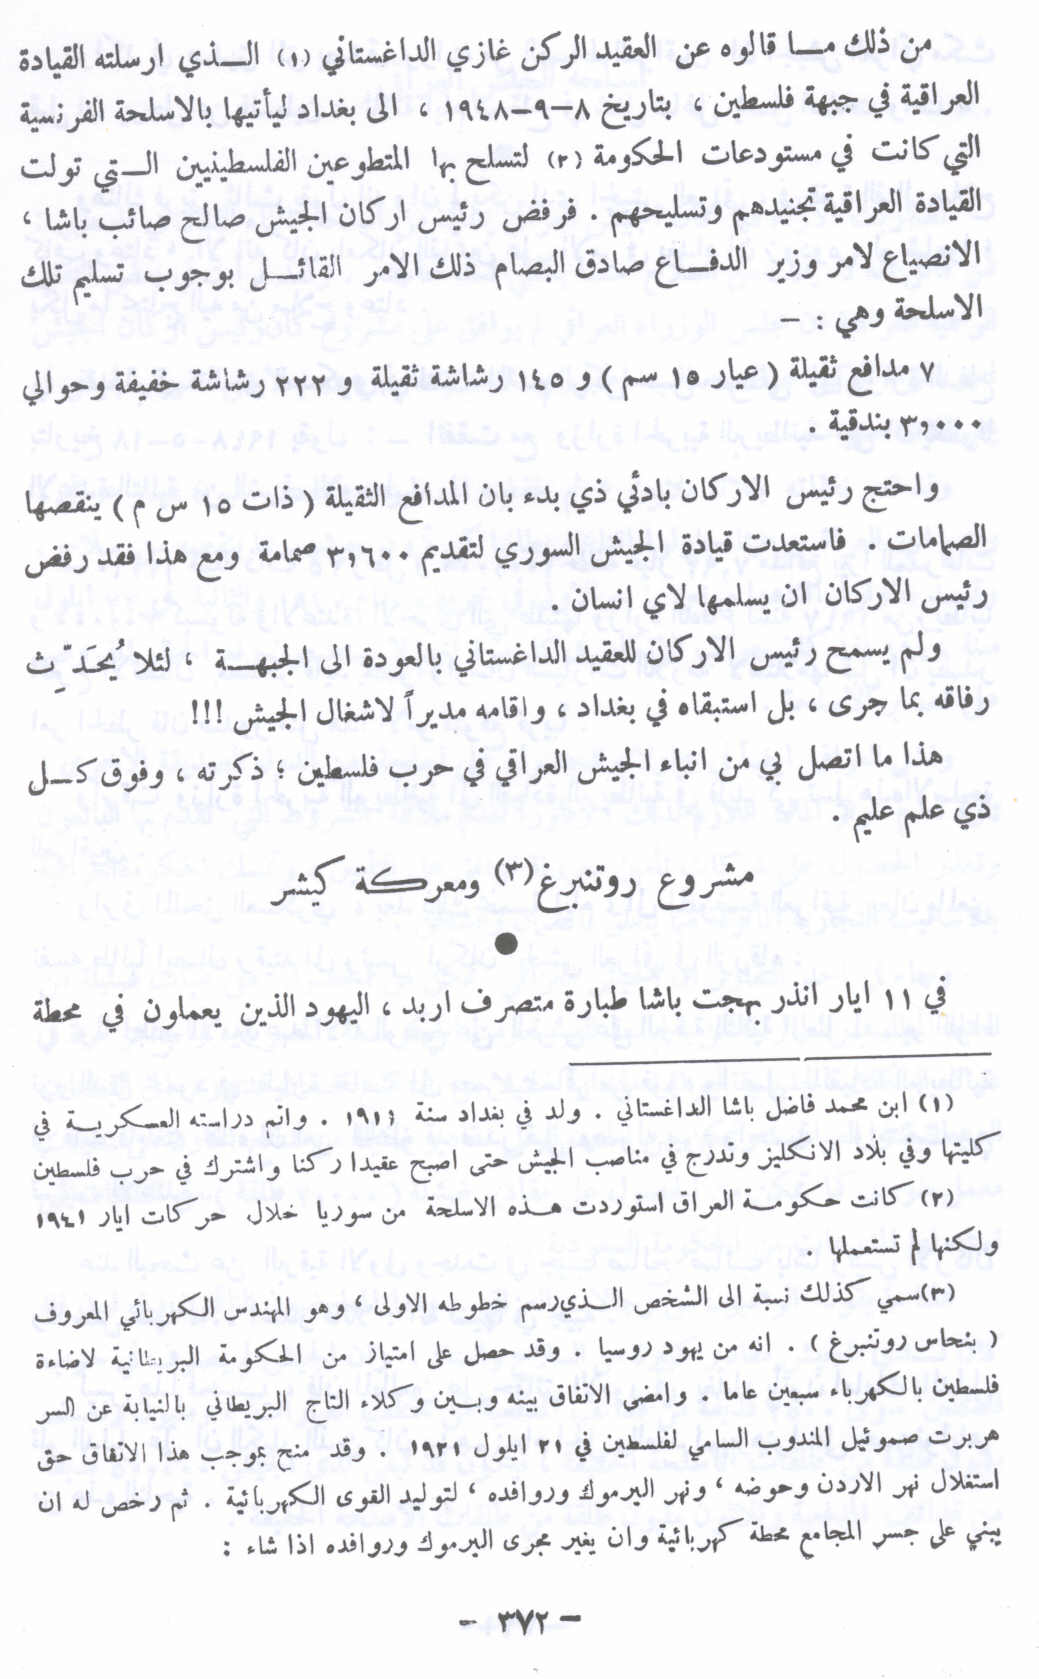 من ذلك مـا قالوه عن العقيد الركن غازي الداغستاني (١) الـذي ارسلته القيادة
العراقية في جبهة فلسطين ، بتاريخ ٨-٩-١٩٤٨ ، الى بغداد ليأتيها بالاسلحة الفرنسية
التي كانت في مستودعات الحكومة (٢) لتسلح بها المتطوعين الفلسطينيين الـتي تولت
القيادة العراقية تجنيدهم وتسليحهم . فرفض رئيس اركان الجيش صالح صائب باشا ،
الانصياع لامر وزير الدفـاع صادق البصام ذلك الامر القائـل بوجوب تسليم تلك
الاسلحة وهي : -
٧ مدافع ثقيلة ( عيار ١٥ سم ) و ١٤٥ رشاشة ثقيلة و ٣٢٢ رشاشة خفيفة وحوالي
٣,٠٠٠ بندقية .
واحتج رئيس الاركان بادئي ذي بدء بان المدافع الثقيلة ( ذات ١٥ س م ) ينقصها
الصمامات . فاستعدت قيادة الجيش السوري لتقديم ٣,٦٠٠ صمامة ومع هذا فقد رفض
رئيس الاركان ان يسلمها لاي انسان .
ولم يسمح رئيس الاركان للعقيد الداغستاني بالعودة الى الجبهـة ، لئلا يُحَدِّث
رفاقه بما جرى ، بل استبقاه في بغداد ، واقامه مديراً لاشغال الجيش !!!
هذا ما اتصل بي من انباء الجيش العراقي في حرب فلسطين ؛ ذكرته ، وفوق كـل
ذي علم عليم .
مشروع روتنبرغ (٣) ومعركة كيشر
●
في ١١ ايار انذر بهجت باشا طبارة متصرف اربد ، اليهود الذين يعملون في محطة
(١) ابن محمد فاضل باشا الداغستاني . ولد في بغداد سنة ١٩١١ . واتم دراسته العسكريـة في
كليتها وفي بلاد الانكليز وتدرج في مناصب الجيش حتى اصبح عقيدا ركنا واشترك في حرب فلسطين
(٢) كانت حكومـة العراق استوردت هـذه الاسلحة من سوريا خلال حركات ايار ١٩٤١
ولكنها لم تستعملها .
(٣) سمي كذلك نسبة الى الشخص الـذي رسم خطوطه الاولى ، وهو المهندس الكهربائي المعروف
( بنحاس روتنبرغ ) . انه من يهود روسيا . وقد حصل على امتياز من الحكومة البريطانية لاضاءة
فلسطين بالكهرباء سبعين عاما . وامضى الاتفاق بينه وبـين وكلاء التاج البريطاني بالنيابة عن السر
هربرت صموئيل المندوب السامي لفلسطين في ٢١ ايلول ١٩٢١ . وقد منح بموجب هذا الاتفاق حق
استغلال نهر الاردن وحوضه ، ونهر اليرموك وروافده ، لتوليد القوى الكهربائية . ثم رخص له ان
يبني على جسر المجامع محطة كهربائية وان يغير مجرى اليرموك وروافده اذا شاء :
- ٣٧٢ -